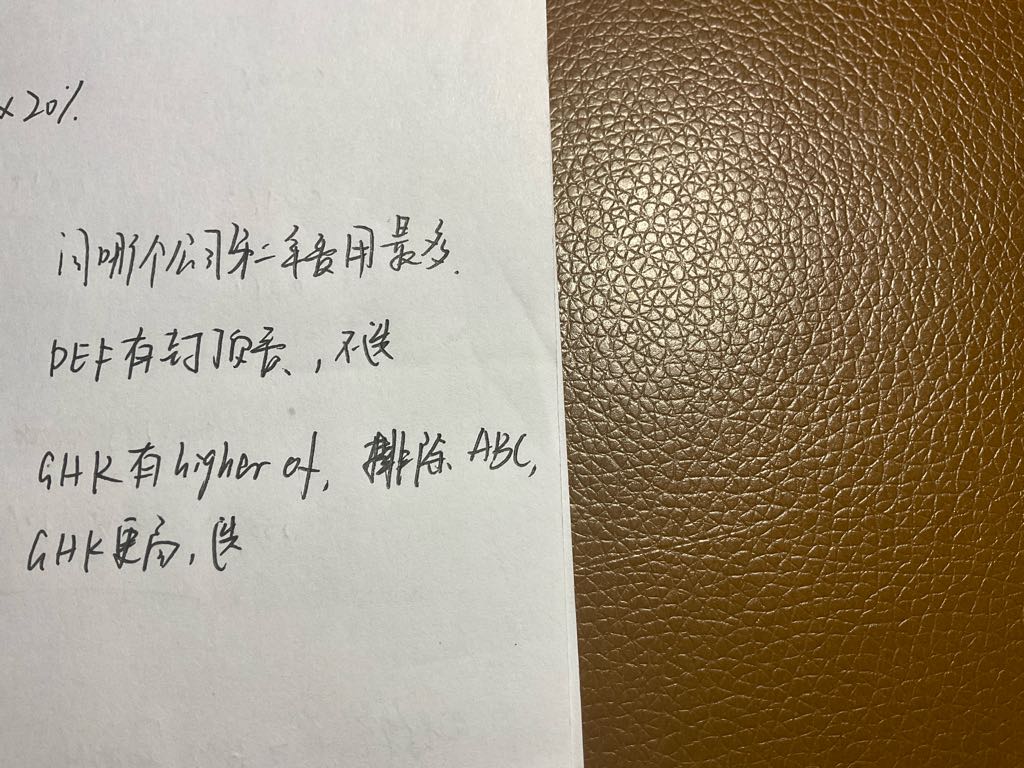 x 20%
问哪个公司第二年费用最多.
DEF有封顶费、,不选
GHK有higher of, 排除 ABC,
GHK更高,选